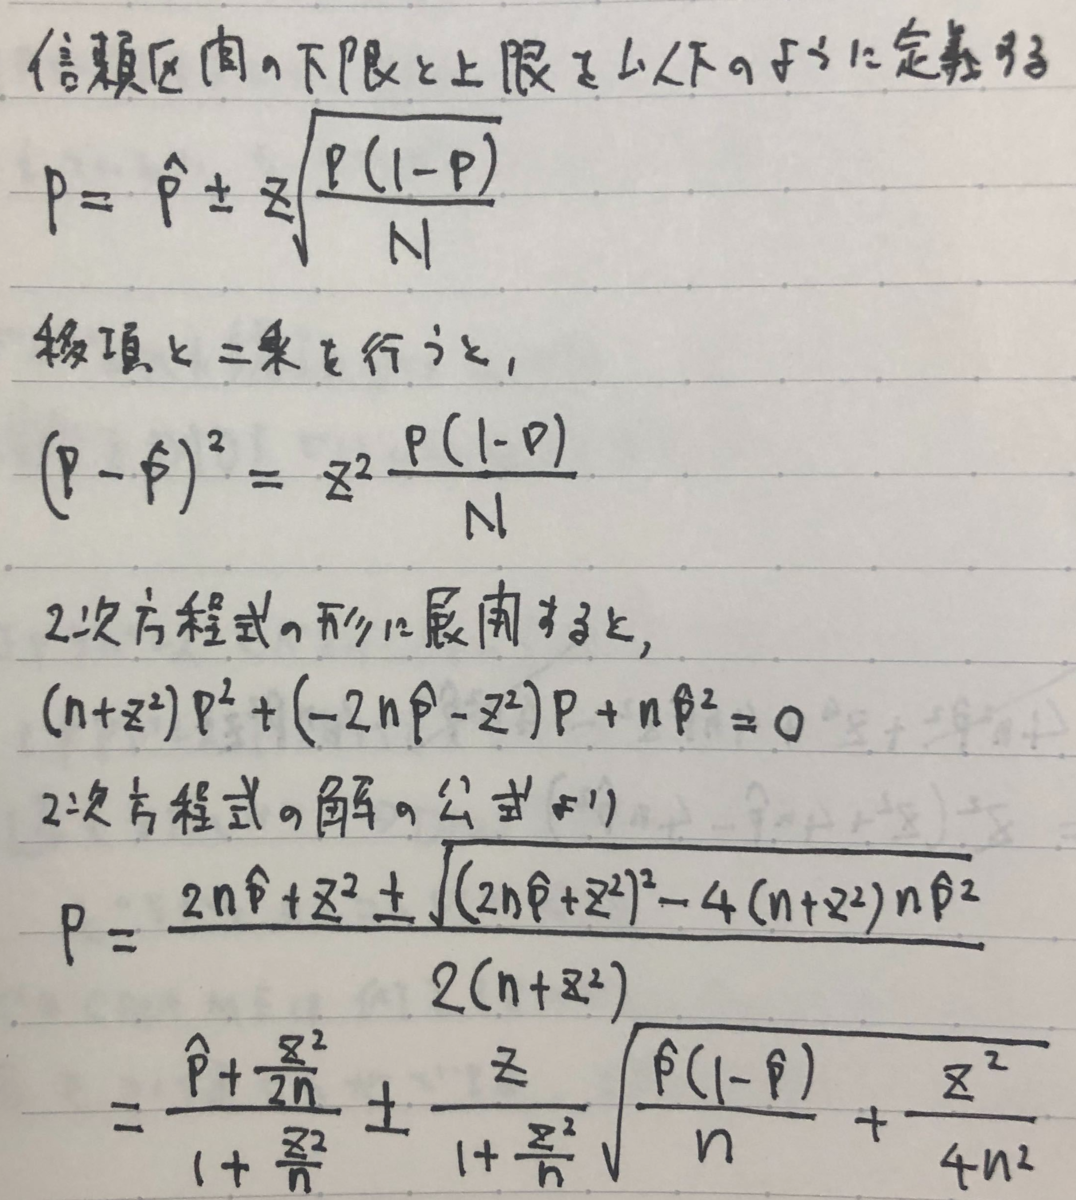 信頼区間の下限と上限を以下のように定義する
p = p̂ ± z√(p(1-p)/N)
移項と二乗を行うと,
(p - p̂)² = z² p(1-p)/N
2次方程式の形に展開すると,
(n+z²)p² + (-2np̂ - z²)p + np̂² = 0
2次方程式の解の公式より
p = (2np̂ + z² ± √((2np̂ + z²)² - 4(n+z²)np̂²)) / 2(n+z²)
= (p̂ + z²/2n)/(1 + z²/n) ± z/(1 + z²/n) √(p̂(1-p̂)/n + z²/4n²)